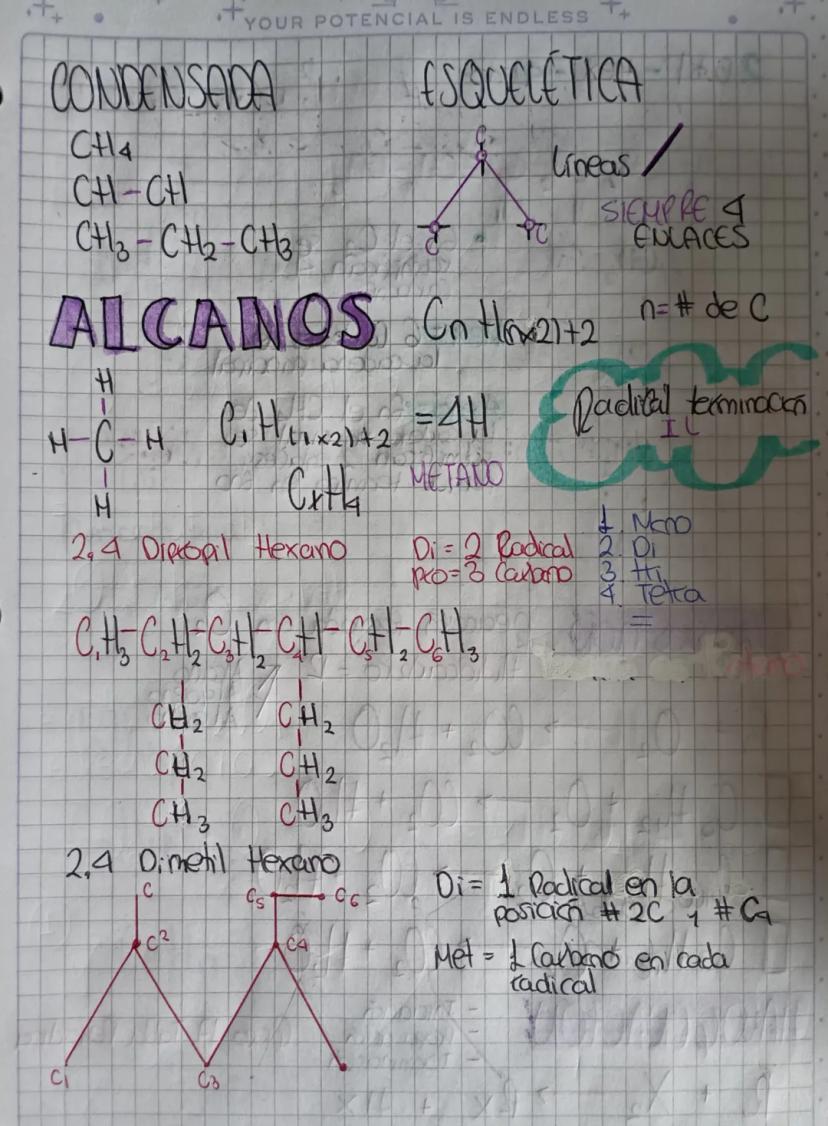 YOUR POTENCIAL IS ENDLESS
CONDENSADA
CH4
CH-CH
CH3-CH2-CH3
ESQUELÉTICA
C
C
C
Líneas /
SIEMPRE 4
ENLACES
ALCANOS CnH(nx2)+2 n=# de C
H
H-C-H
H
C1H(1x2)+2 =4H
C1H4 METANO
Radical terminación
IL
2,4 Dipropil Hexano
Di = 2 Radical
pro=3 Carbano
1. Mono
2. Di
3. Tri
4. Tetra
=
C1H3-C2H2-C3H2-C4H-C5H2-C6H3
CH2 CH2
CH2 CH2
CH3 CH3
2,4 Dimetil Hexano
C C5 C6
C2 C4
C1 C3
Di= 1 Radical en la
posición #2C y #C4
Met = 1 Carbano en cada
radical